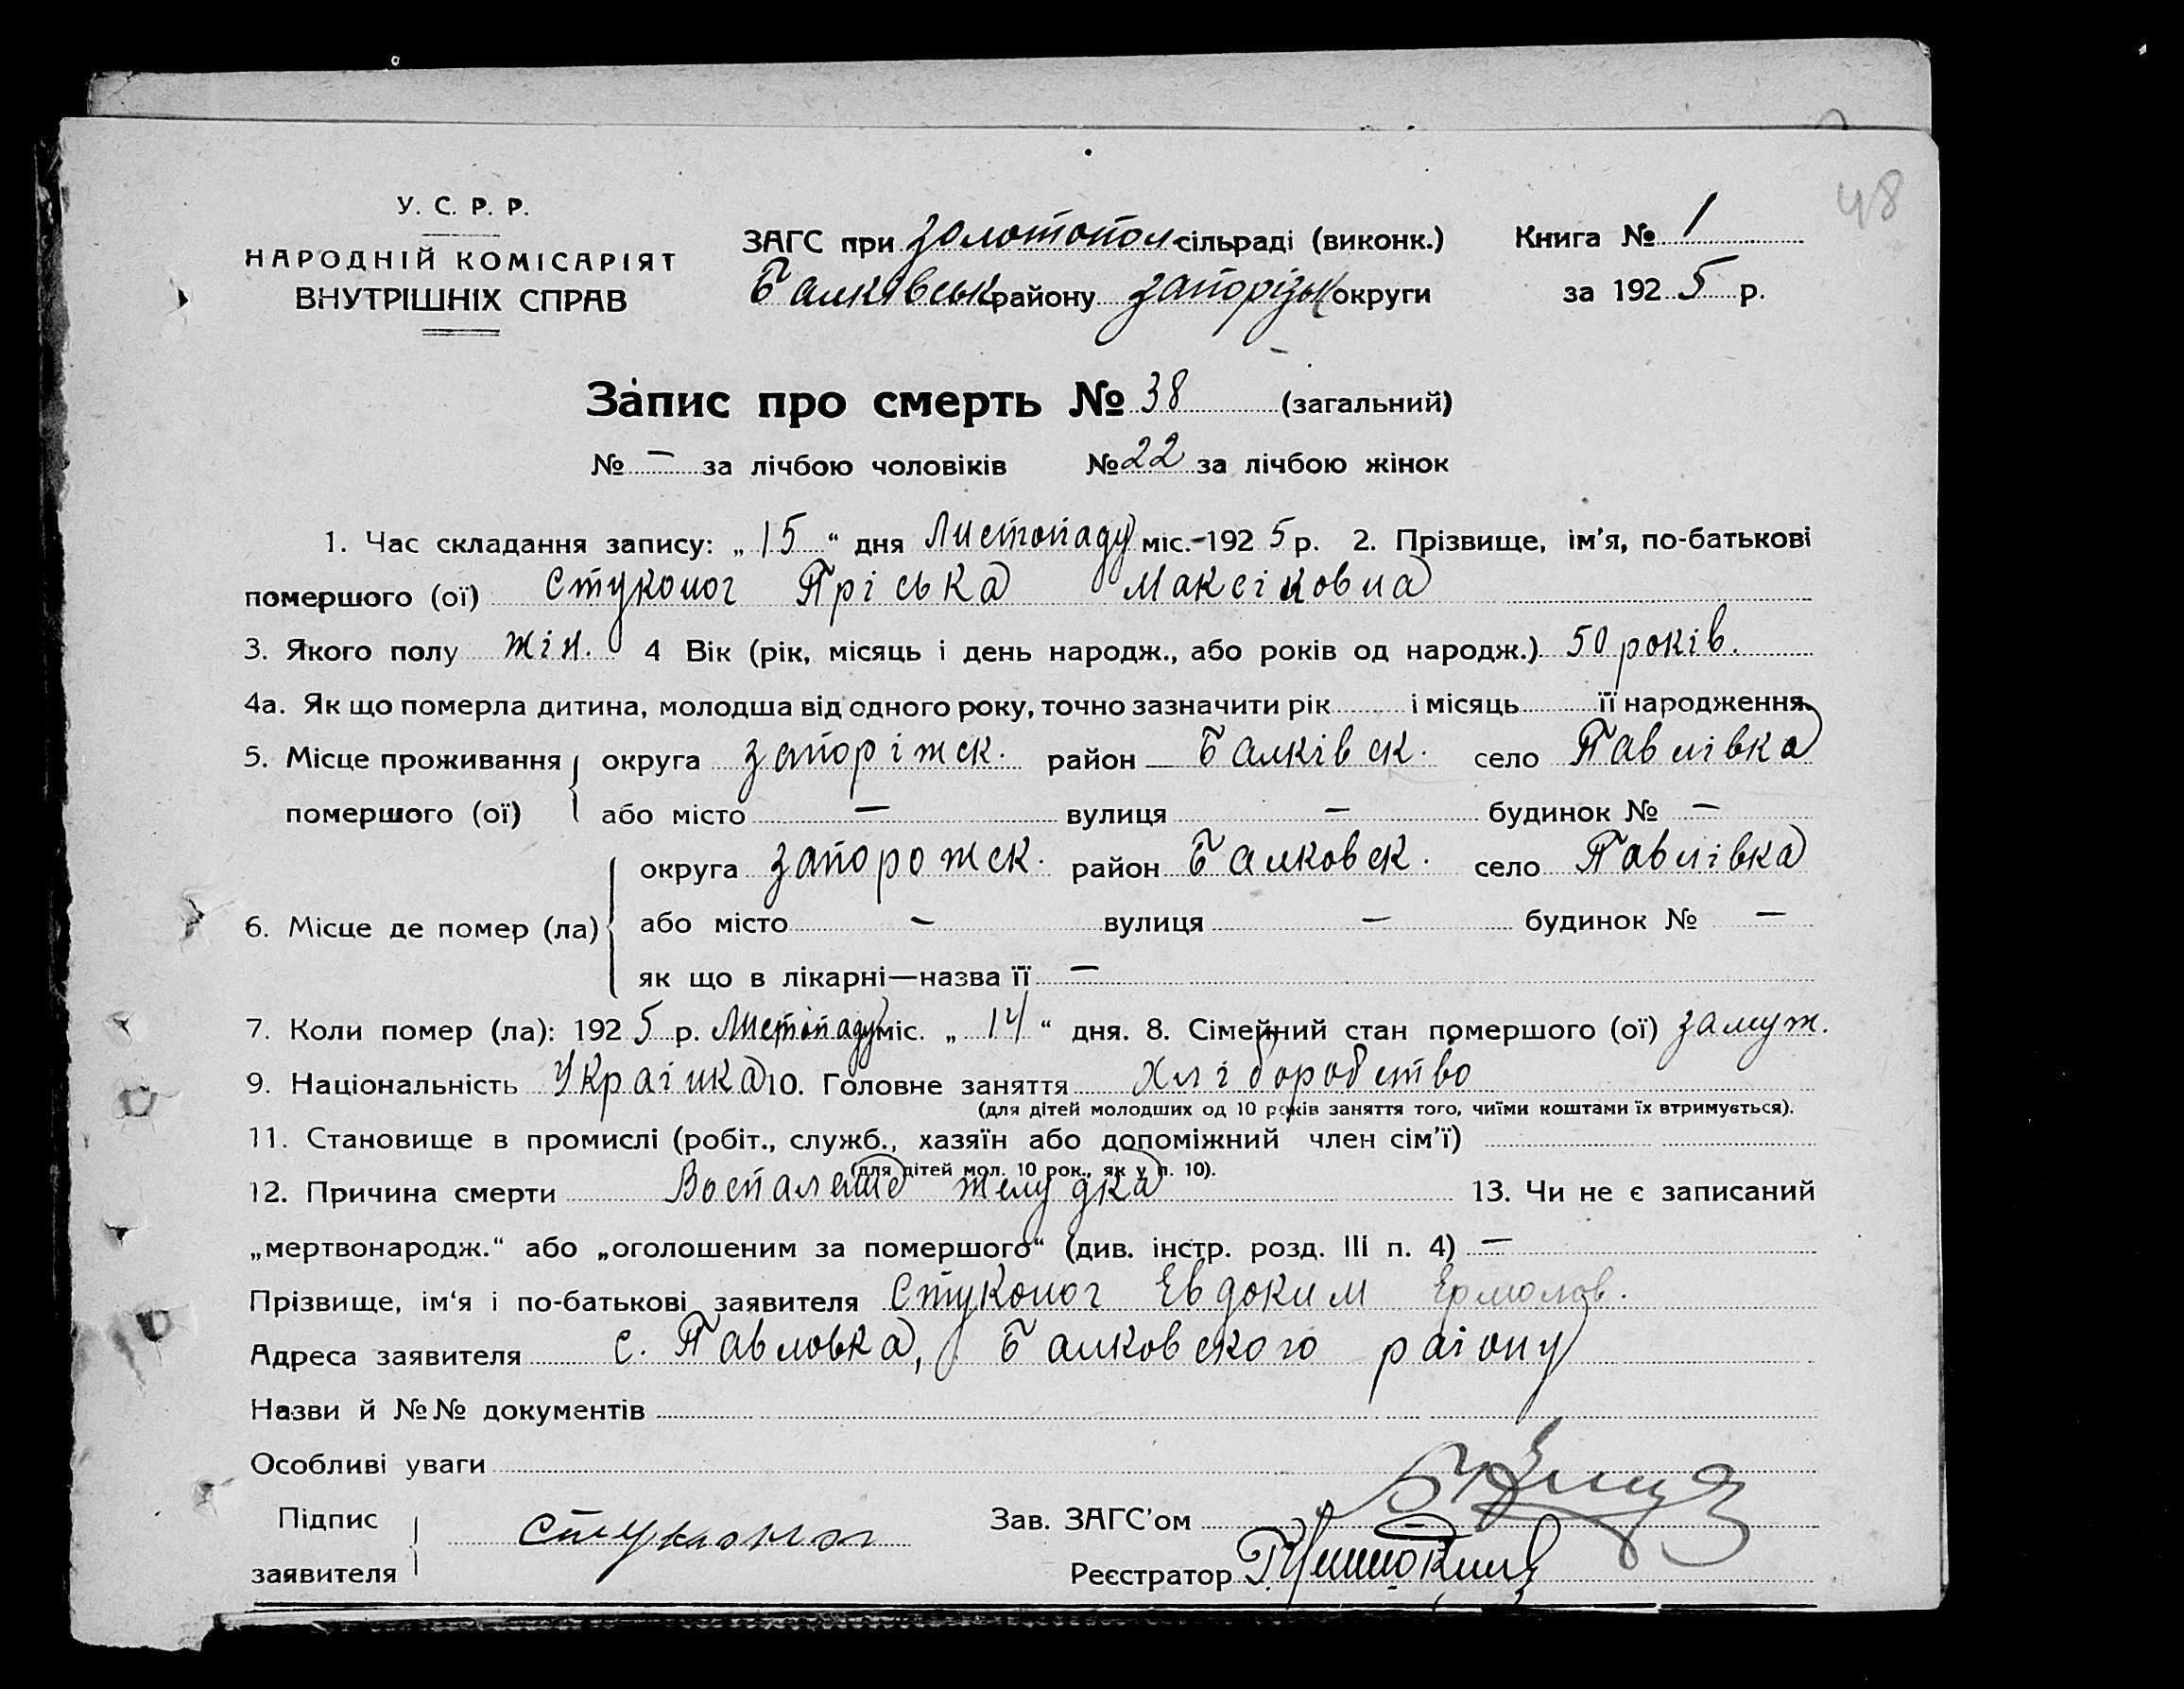 48
У. С. Р. Р.
НАРОДНІЙ КОМІСАРІЯТ
ВНУТРІШНІХ СПРАВ
ЗАГС при Золотопол сільраді (виконк.)
Балківськ району Запорізьк округи
Книга № 1
за 1925 р.
Запис про смерть № 38 (загальний)
№ — за лічбою чоловіків № 22 за лічбою жінок
1. Час складання запису: „15“ дня Листопаду міс. 1925 р. 2. Прізвище, ім'я, по-батькові
помершого (ої) Стуконог Пріська Максіковна
3. Якого полу жін. 4 Вік (рік, місяць і день народж., або років од народж.) 50 років.
4а. Як що померла дитина, молодша від одного року, точно зазначити рік і місяць її народження.
5. Місце проживання помершого (ої) округа Запоріжск. район Балківск. село Павлівка
або місто — вулиця — будинок № —
6. Місце де помер (ла) округа Запорожск. район Балковск. село Павлівка
або місто — вулиця — будинок № —
як що в лікарні—назва її —
7. Коли помер (ла): 1925 р. Листопаду міс. „14“ дня. 8. Сімейний стан помершого (ої) замуж.
9. Національність Украінка 10. Головне заняття Хліборобство
(для дітей молодших од 10 років заняття того, чиїми коштами їх втримується).
11. Становище в промислі (робіт., служб., хазяїн або допоміжний член сім'ї)
(для дітей мол. 10 рок., як у п. 10).
12. Причина смерти Воспаление желудка 13. Чи не є записаний
„мертвонародж.“ або „оголошеним за помершого“ (див. інстр. розд. III п. 4) —
Прізвище, ім'я і по-батькові заявителя Стуконог Евдоким Ермолов.
Адреса заявителя с. Павловка, Балковского раіону
Назви й №№ документів
Особливі уваги
Підпис заявителя Стуконог
Зав. ЗАГС'ом
Реєстратор